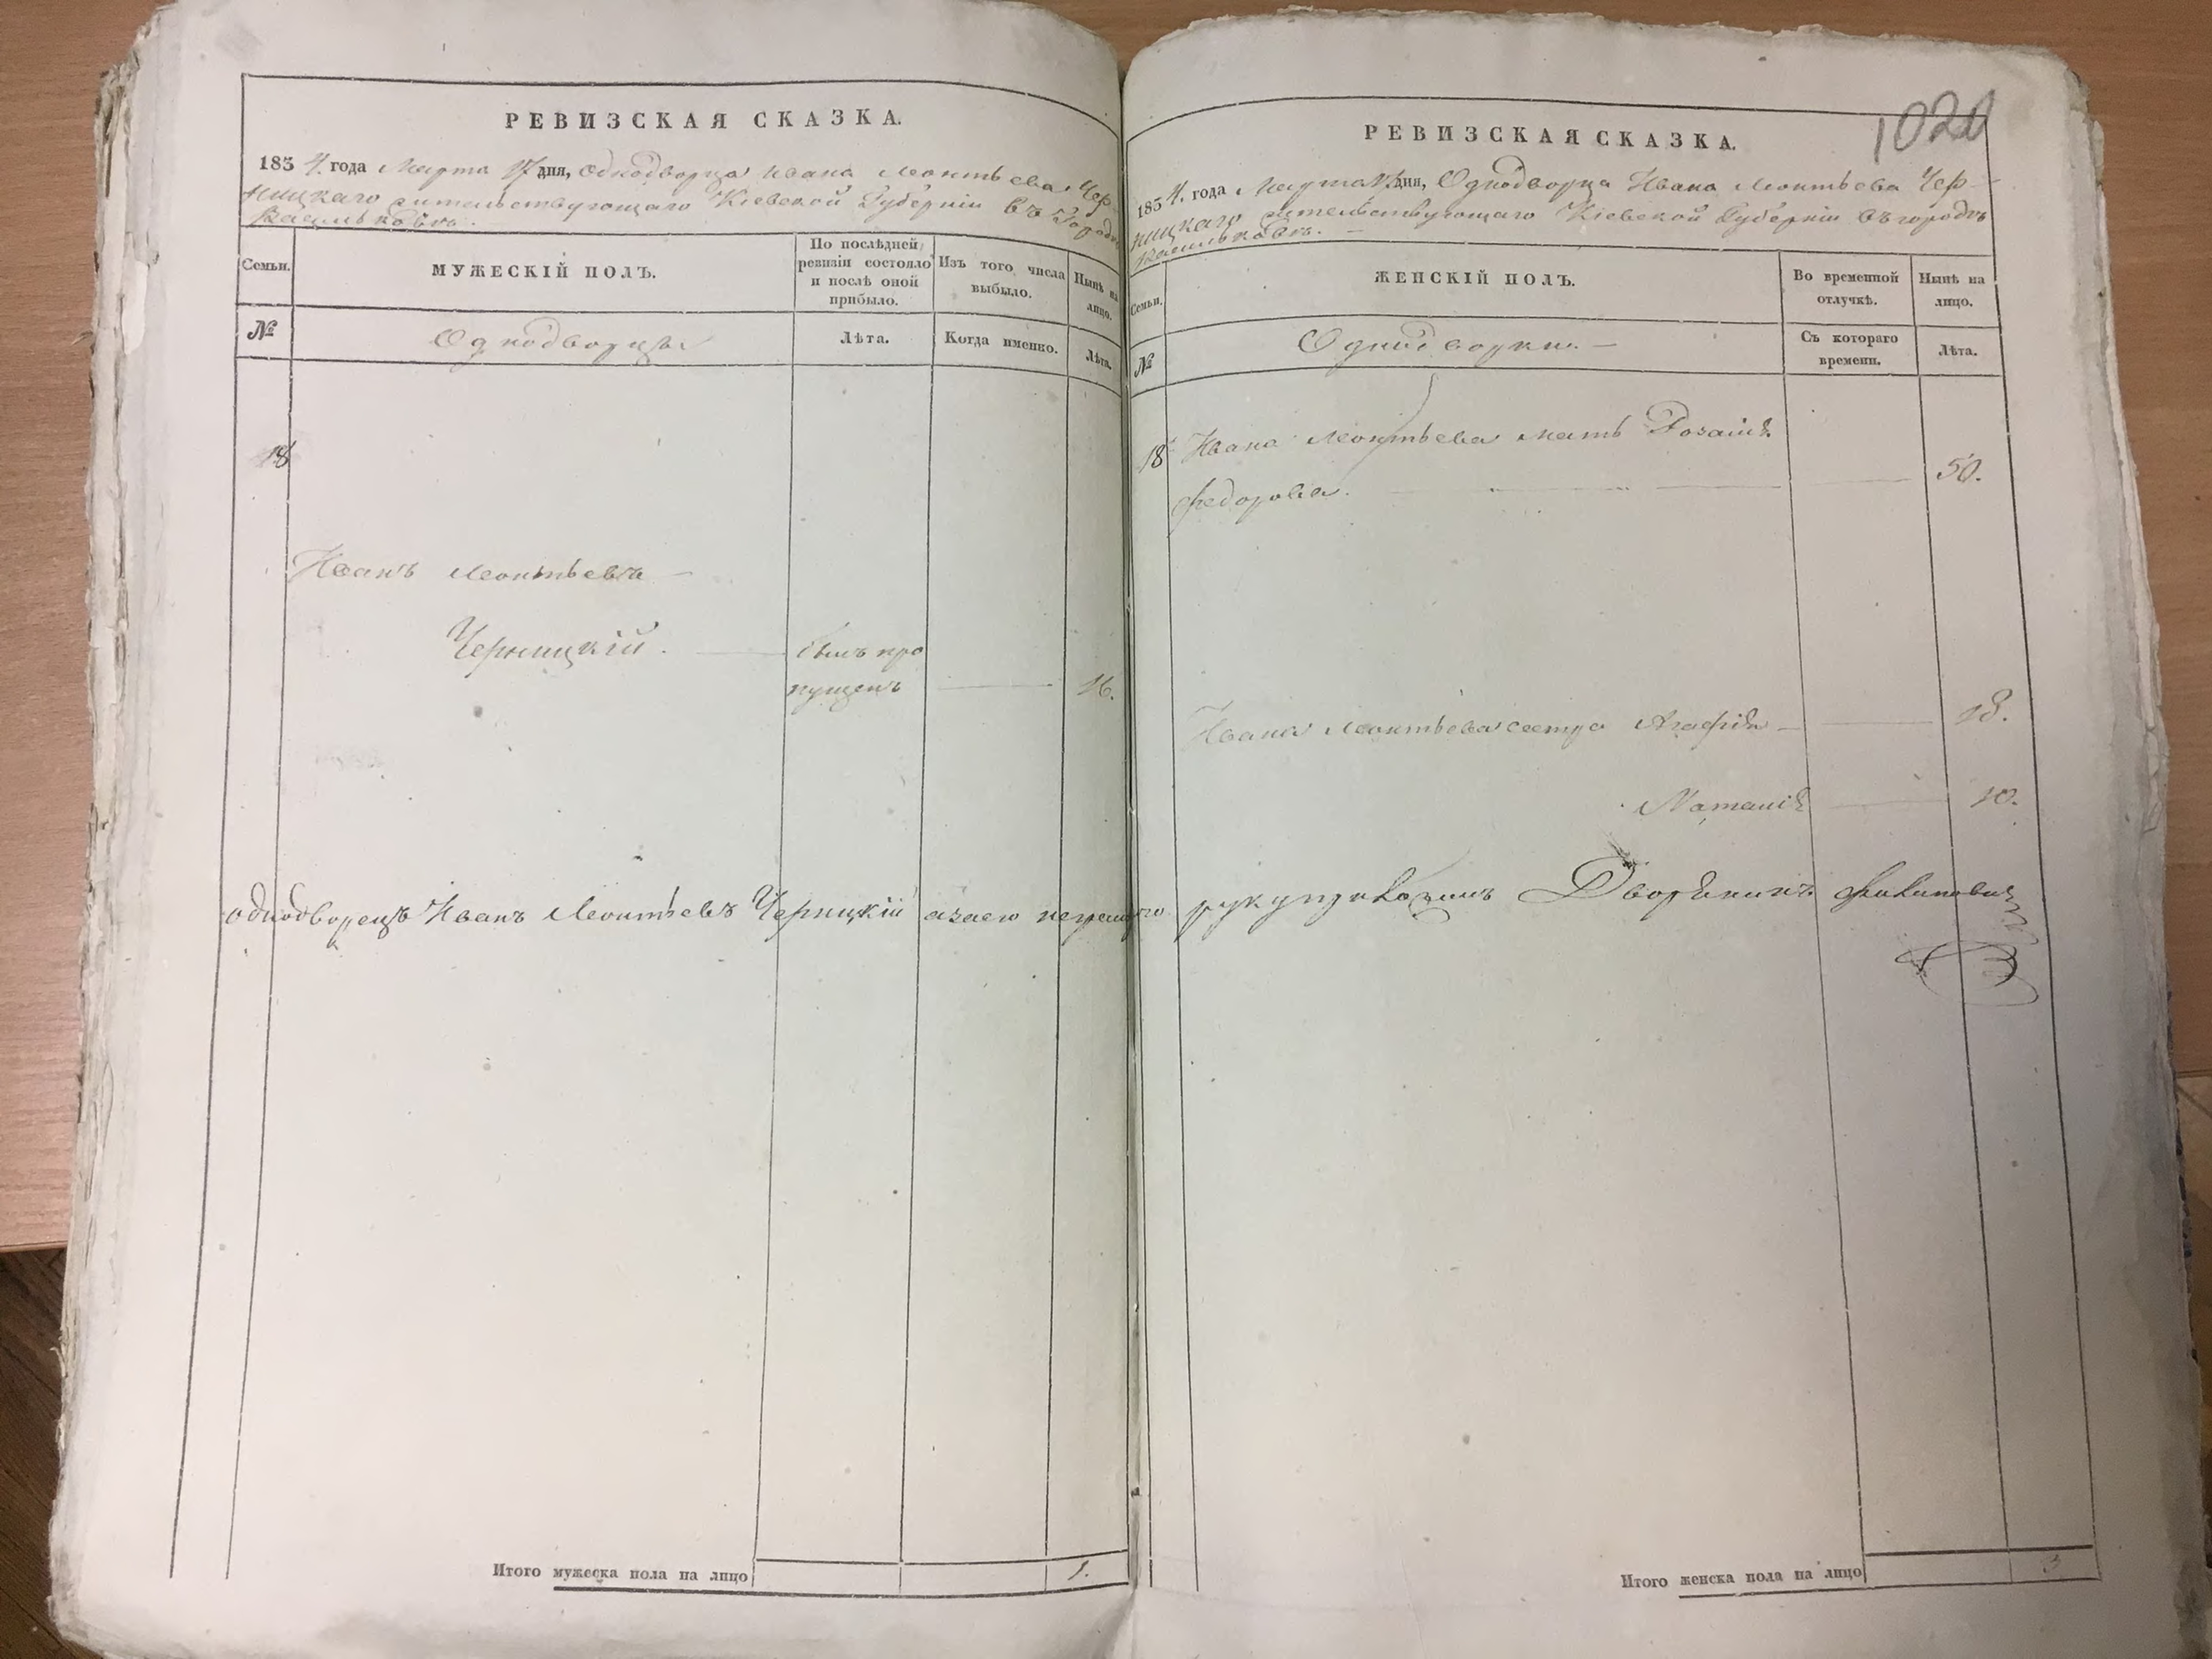 РЕВИЗСКАЯ СКАЗКА.
1854. года Марта 17 дня, Однодворца Ивана Леонтьева Чер
ницкаго жительствующаго Кіевской Губерніи въ Городѣ
Василькове.
Семьи.
МУЖЕСКІЙ ПОЛЪ.
По послѣдней ревизіи состояло и послѣ оной прибыло.
Изъ того числа выбыло.
Нынѣ на лицо.
№
Однодворцы
Лѣта.
Когда именно.
Лѣта.
18
Иванъ Леонтьевъ
Черницкій.
былъ про
пущенъ
16.
однодворецъ Иванъ Леонтьевъ Черницкій
Итого мужеска пола на лицо
1.
1020
РЕВИЗСКАЯ СКАЗКА.
1854. года Марта 17 дня, Однодворца Ивана Леонтьева Чер-
ницкаго жительствующаго Кіевской Губерніи въ городѣ
Василькове.
Семьи.
ЖЕНСКІЙ ПОЛЪ.
Во временной отлучкѣ.
Нынѣ на лицо.
№
Однодворки.
Съ котораго времени.
Лѣта.
18
Ивана Леонтьева мать Розалія
Федорова.
50.
Ивана Леонтьева сестра Агафія
18.
Наталія
10.
Дворянинъ
Итого женска пола на лицо
3